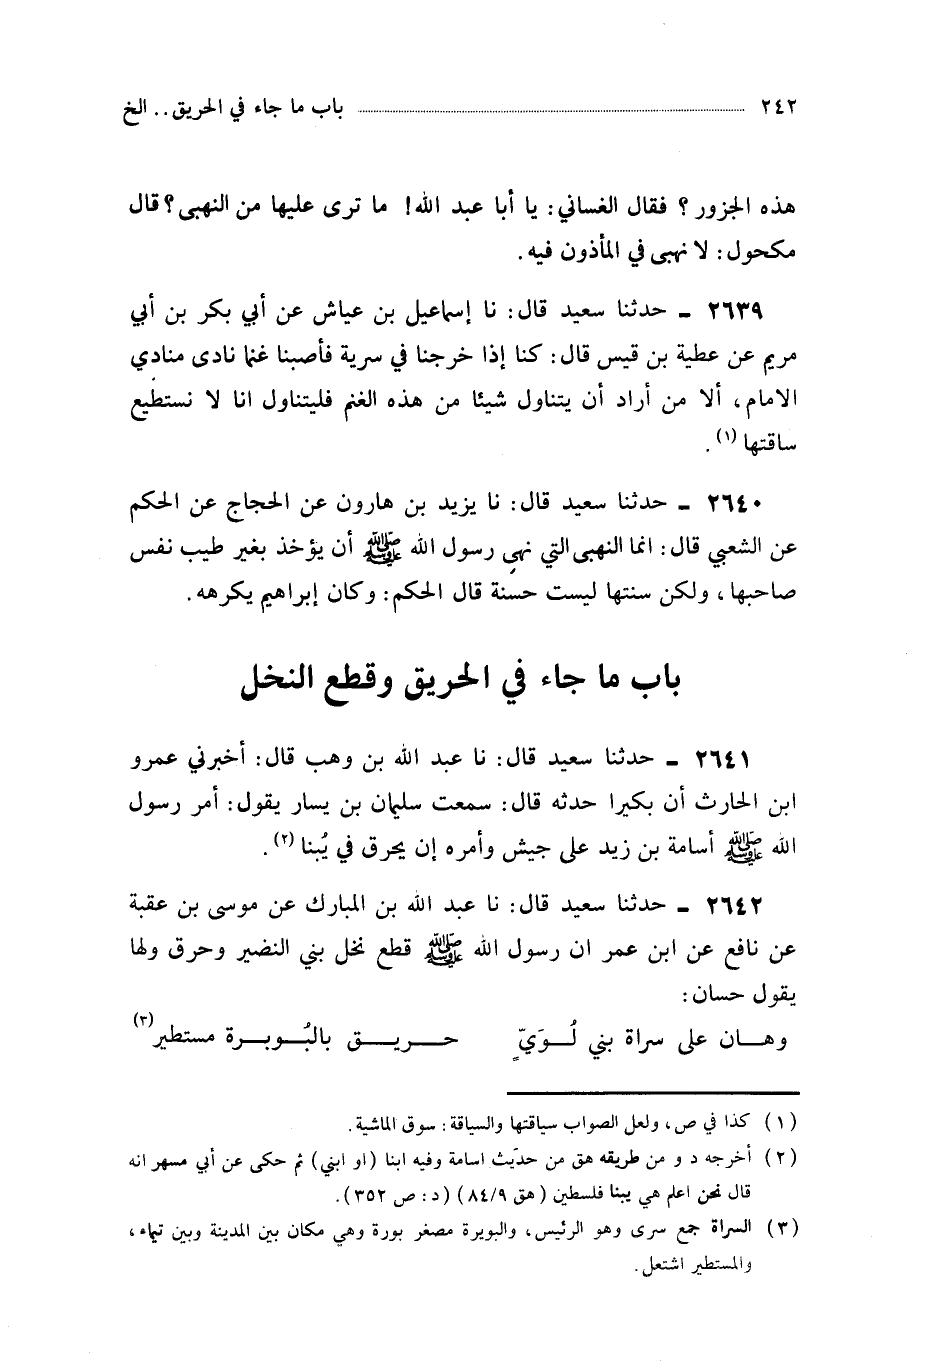 ٢٤٢ باب ما جاء في الحريق . . الخ
هذه الجزور ؟ فقال الغساني : يا أبا عبد الله ! ما ترى عليها من النهبى ؟ قال
مكحول : لا نهبى في المأذون فيه .
٢٦٣٩ ـ حدثنا سعيد قال : نا إسماعيل بن عياش عن أبي بكر بن أبي
مريم عن عطية بن قيس قال : كنا إذا خرجنا في سرية فأصبنا غنما نادى منادي
الامام ، ألا من أراد أن يتناول شيئا من هذه الغنم فليتناول انا لا نستطيع
ساقتها (١) .
٢٦٤٠ ـ حدثنا سعيد قال : نا يزيد بن هارون عن الحجاج عن الحكم
عن الشعبي قال : انما النهبى التي نهى رسول الله ﷺ أن يؤخذ بغير طيب نفس
صاحبها ، ولكن سنتها ليست حسنة قال الحكم : وكان إبراهيم يكرهه .
باب ما جاء في الحريق وقطع النخل
٢٦٤١ ـ حدثنا سعيد قال : نا عبد الله بن وهب قال : أخبرني عمرو
ابن الحارث أن بكيرا حدثه قال : سمعت سليمان بن يسار يقول : أمر رسول
الله ﷺ أسامة بن زيد على جيش وأمره إن يحرق في يُبنا (٢) .
٢٦٤٢ ـ حدثنا سعيد قال : نا عبد الله بن المبارك عن موسى بن عقبة
عن نافع عن ابن عمر ان رسول الله ﷺ قطع نخل بني النضير وحرق ولها
يقول حسان :
وهـان على سراة بني لُـوَيٍّ حـريـق بالبُـويـرة مستطير (٣)
(١) كذا في ص ، ولعل الصواب سياقتها والسياقة : سوق الماشية .
(٢) أخرجه د و من طريقه هق من حديث اسامة وفيه ابنا (او ابني) ثم حكى عن أبي مسهر انه
قال نحن اعلم هي يبنا فلسطين (هق ٨٤/٩) (د : ص ٣٥٢) .
(٣) السراة جمع سرى وهو الرئيس ، والبويرة مصغر بورة وهي مكان بين المدينة وبين تيماء ،
والمستطير اشتعل .